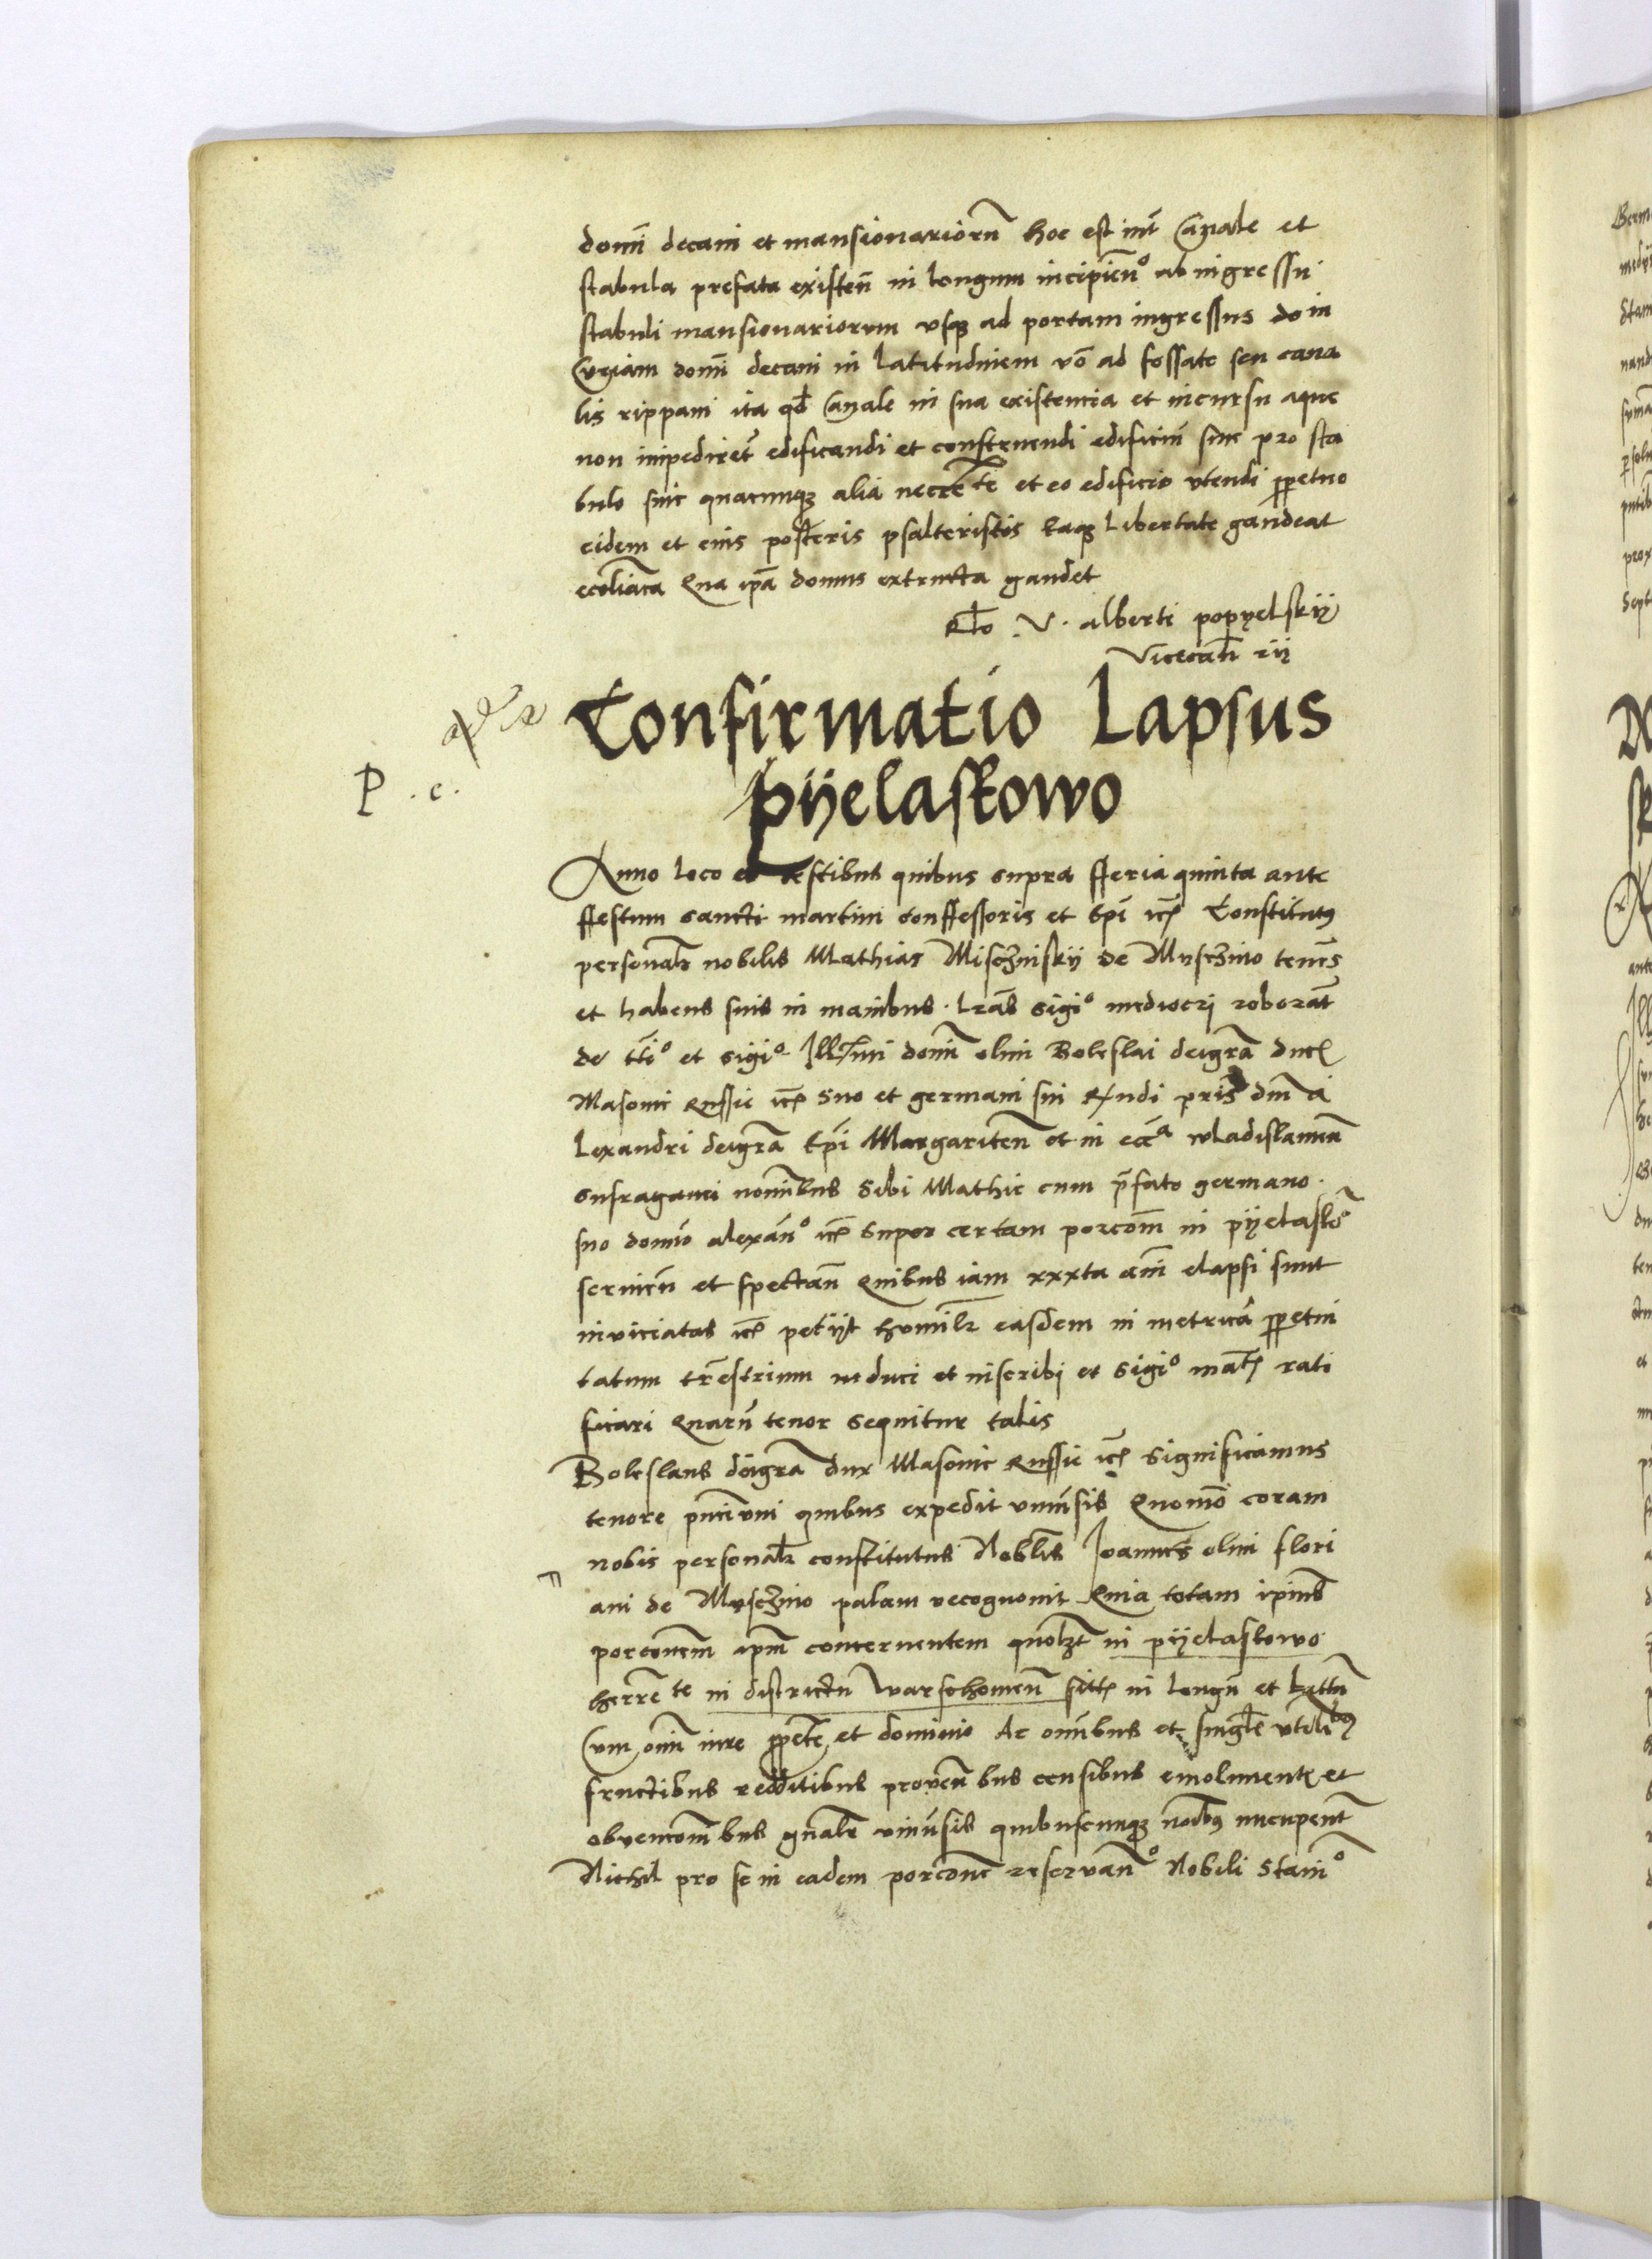 domī decani et mansionariorū hoc est int̄ Canale et
stabula prefata existeñ in longum incipieñº ab ingressu
stabuli mansionariorum vsqʒ ad portam ingressus do in
Curiam domī decani in latitudinem vō ad fossate seu cana
lis rippam ita qđ Canale in sua existencia et incursu aque
non impediret̄ edificandi et construendi edificiū siue pro sta
bulo siue quacunqʒ alia necrēte et eo edificio vtendi ꝑpetuo
eidem et eius posteris psalteristis Eaqʒ libertate gaudeat
Qua ip̄a domus extructa gaudet
Rl̄o . V . alberti popyelskij
Vicecan̄ rij
Confirmatio Lapsus
pijelastowo
P . c .
Anno loco et testibus quibus supra fferia quinta ante
ffestum sancti martini conffessoris et Ep̄i ic̄ʒ Constitutꝰ
personalr̄ nobilis Mathias Mischinskij de Muschino tenēs
et habens suis in manibus . lrās sigiº mediocri roborat̄
de tt̄iº et sigiº Ill̄mi domī olim Boleslai deigrā ducʒ
Masouie Russie ic̄ʒ Suo et germani sui Rndi p̄ris dm̄ a
lexandri deigrā Ep̄i Margariteñ et in ecc̄ª wladislauieñ
suffraganei nomībus sibi Mathie cum p̄fato germano .
suo domīo alexan̄º ic̄ʒ super certam porcōm in pijelastoº
seruieñ et spectañ Quibus iam xxxta anī elapsi sunt
inviciatas ic̄ʒ petijt humilr̄ easdem in metricā ꝑpetui
tatum trēstrium induci et inscribi et sigiº mat̄ʒ rati
ficari Quarū tenor sequitur talis
Boleslaus deigrā dux Masouie Russie ic̄ʒ significamus
tenore pn̄cium quibus expedit vniūsis Quomō coram
nobis personalr̄ constitutus Nobl̄is Joannes olim flori
ani de Muschino palam recognouit Quia totam ip̄ius
porcionem ip̄m concernentem quolzt in pijelastowo
herr̄e te in districtu warschouieñ sitt̄ʒ in longū et lattū
Cum omī iure ꝑpete et dominio Ac omībus et singl̄e vtiliᵇꝰ
fructibus redditibus proueñ bus censibus emolumentʒ et
obuencōm bus gn̄alr̄ vniūsis quibuscunqʒ nōibꝰ nuncupent̄
Nichil pro se in eadem porcōne reseruan̄º Nobili Staniº